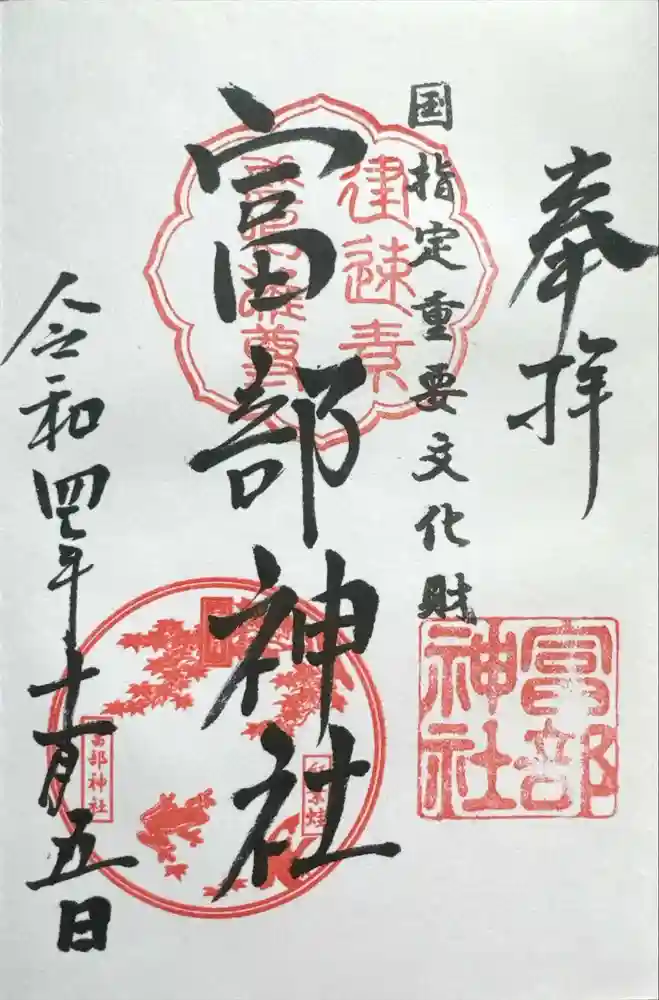 奉拝
国指定重要文化財
富部神社
富部
神社
建速素
盞嗚尊
富部神社
令和四年十一月五日